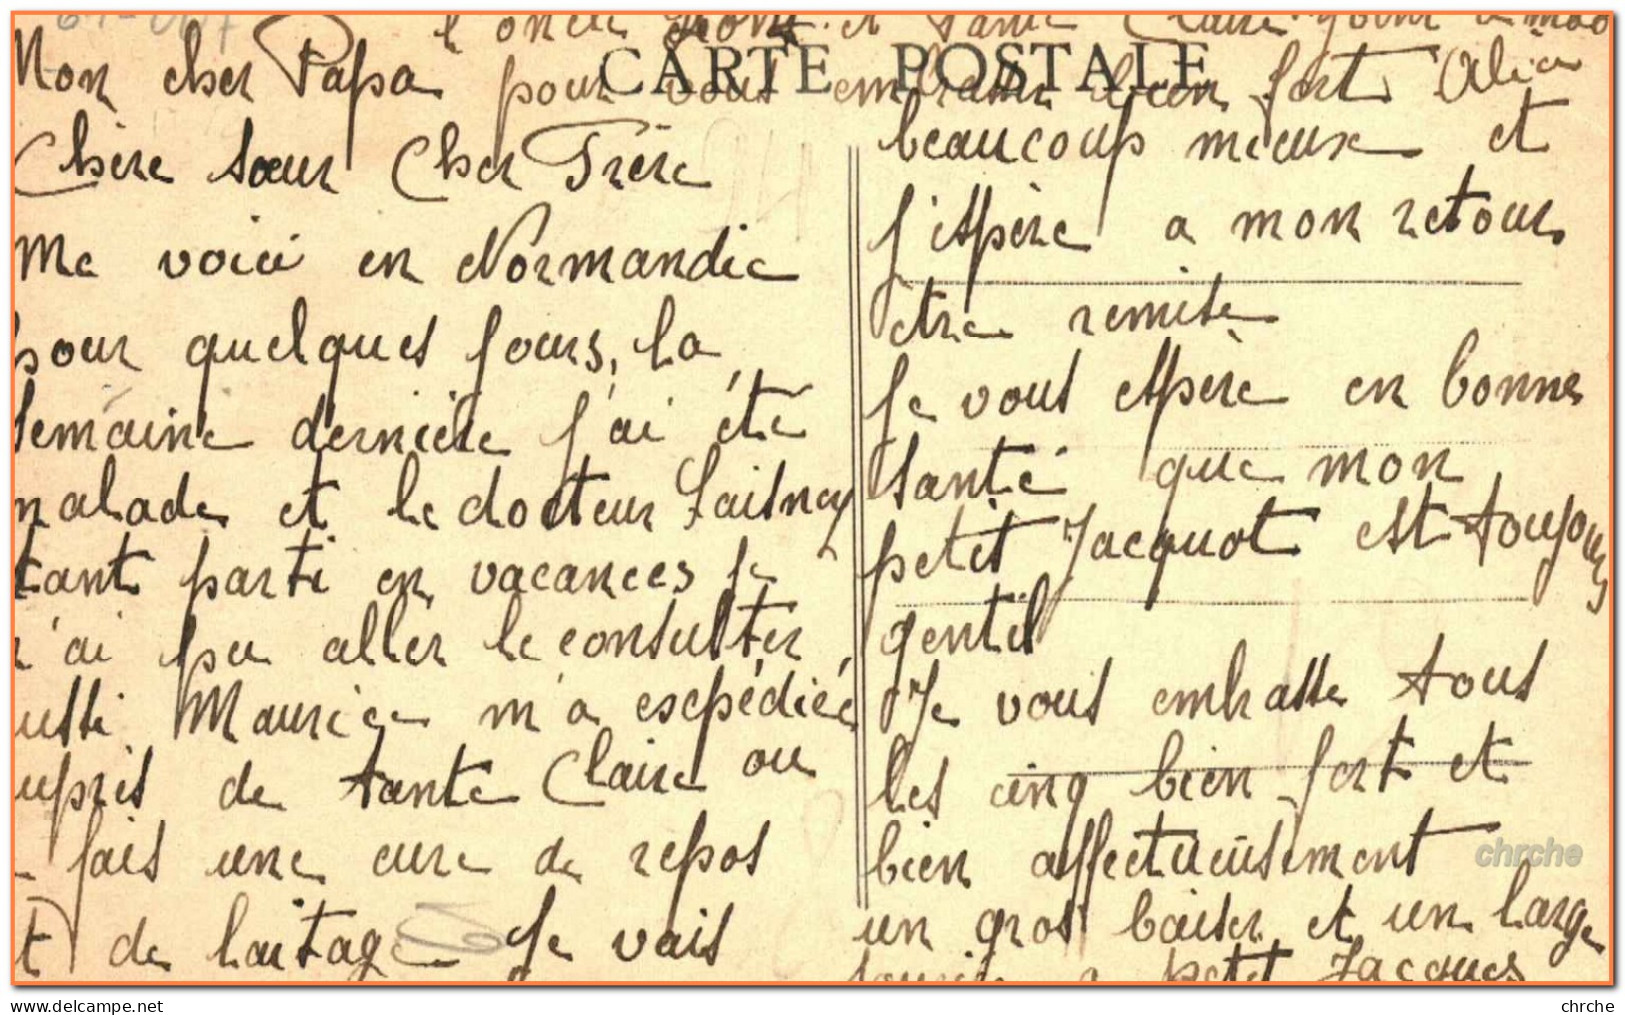 l'oncle et Tante Claire
CARTE POSTALE
Mon cher Papa pour vous embrasser bien fort Alice
Chère sœur Cher Frère
Me voici en Normandie
pour quelques jours, la
semaine dernière j'ai été
malade et le docteur Laisney
tant parti en vacances je
n'ai pu aller le consulter
ussi Maurice m'a expédiée
uprès de tante Claire ou
fais une cure de repos
t de laitage Je vais
beaucoup mieux et
j'espère a mon retour
etre remise
Je vous espère en bonne
santé que mon
petit Jacquot est toujours
gentil
Je vous embrasse tous
les cinq bien fort et
bien affectueusement
un gros baiser et un large
sourire a petit Jacques
chrche
www.delcampe.net
chrche